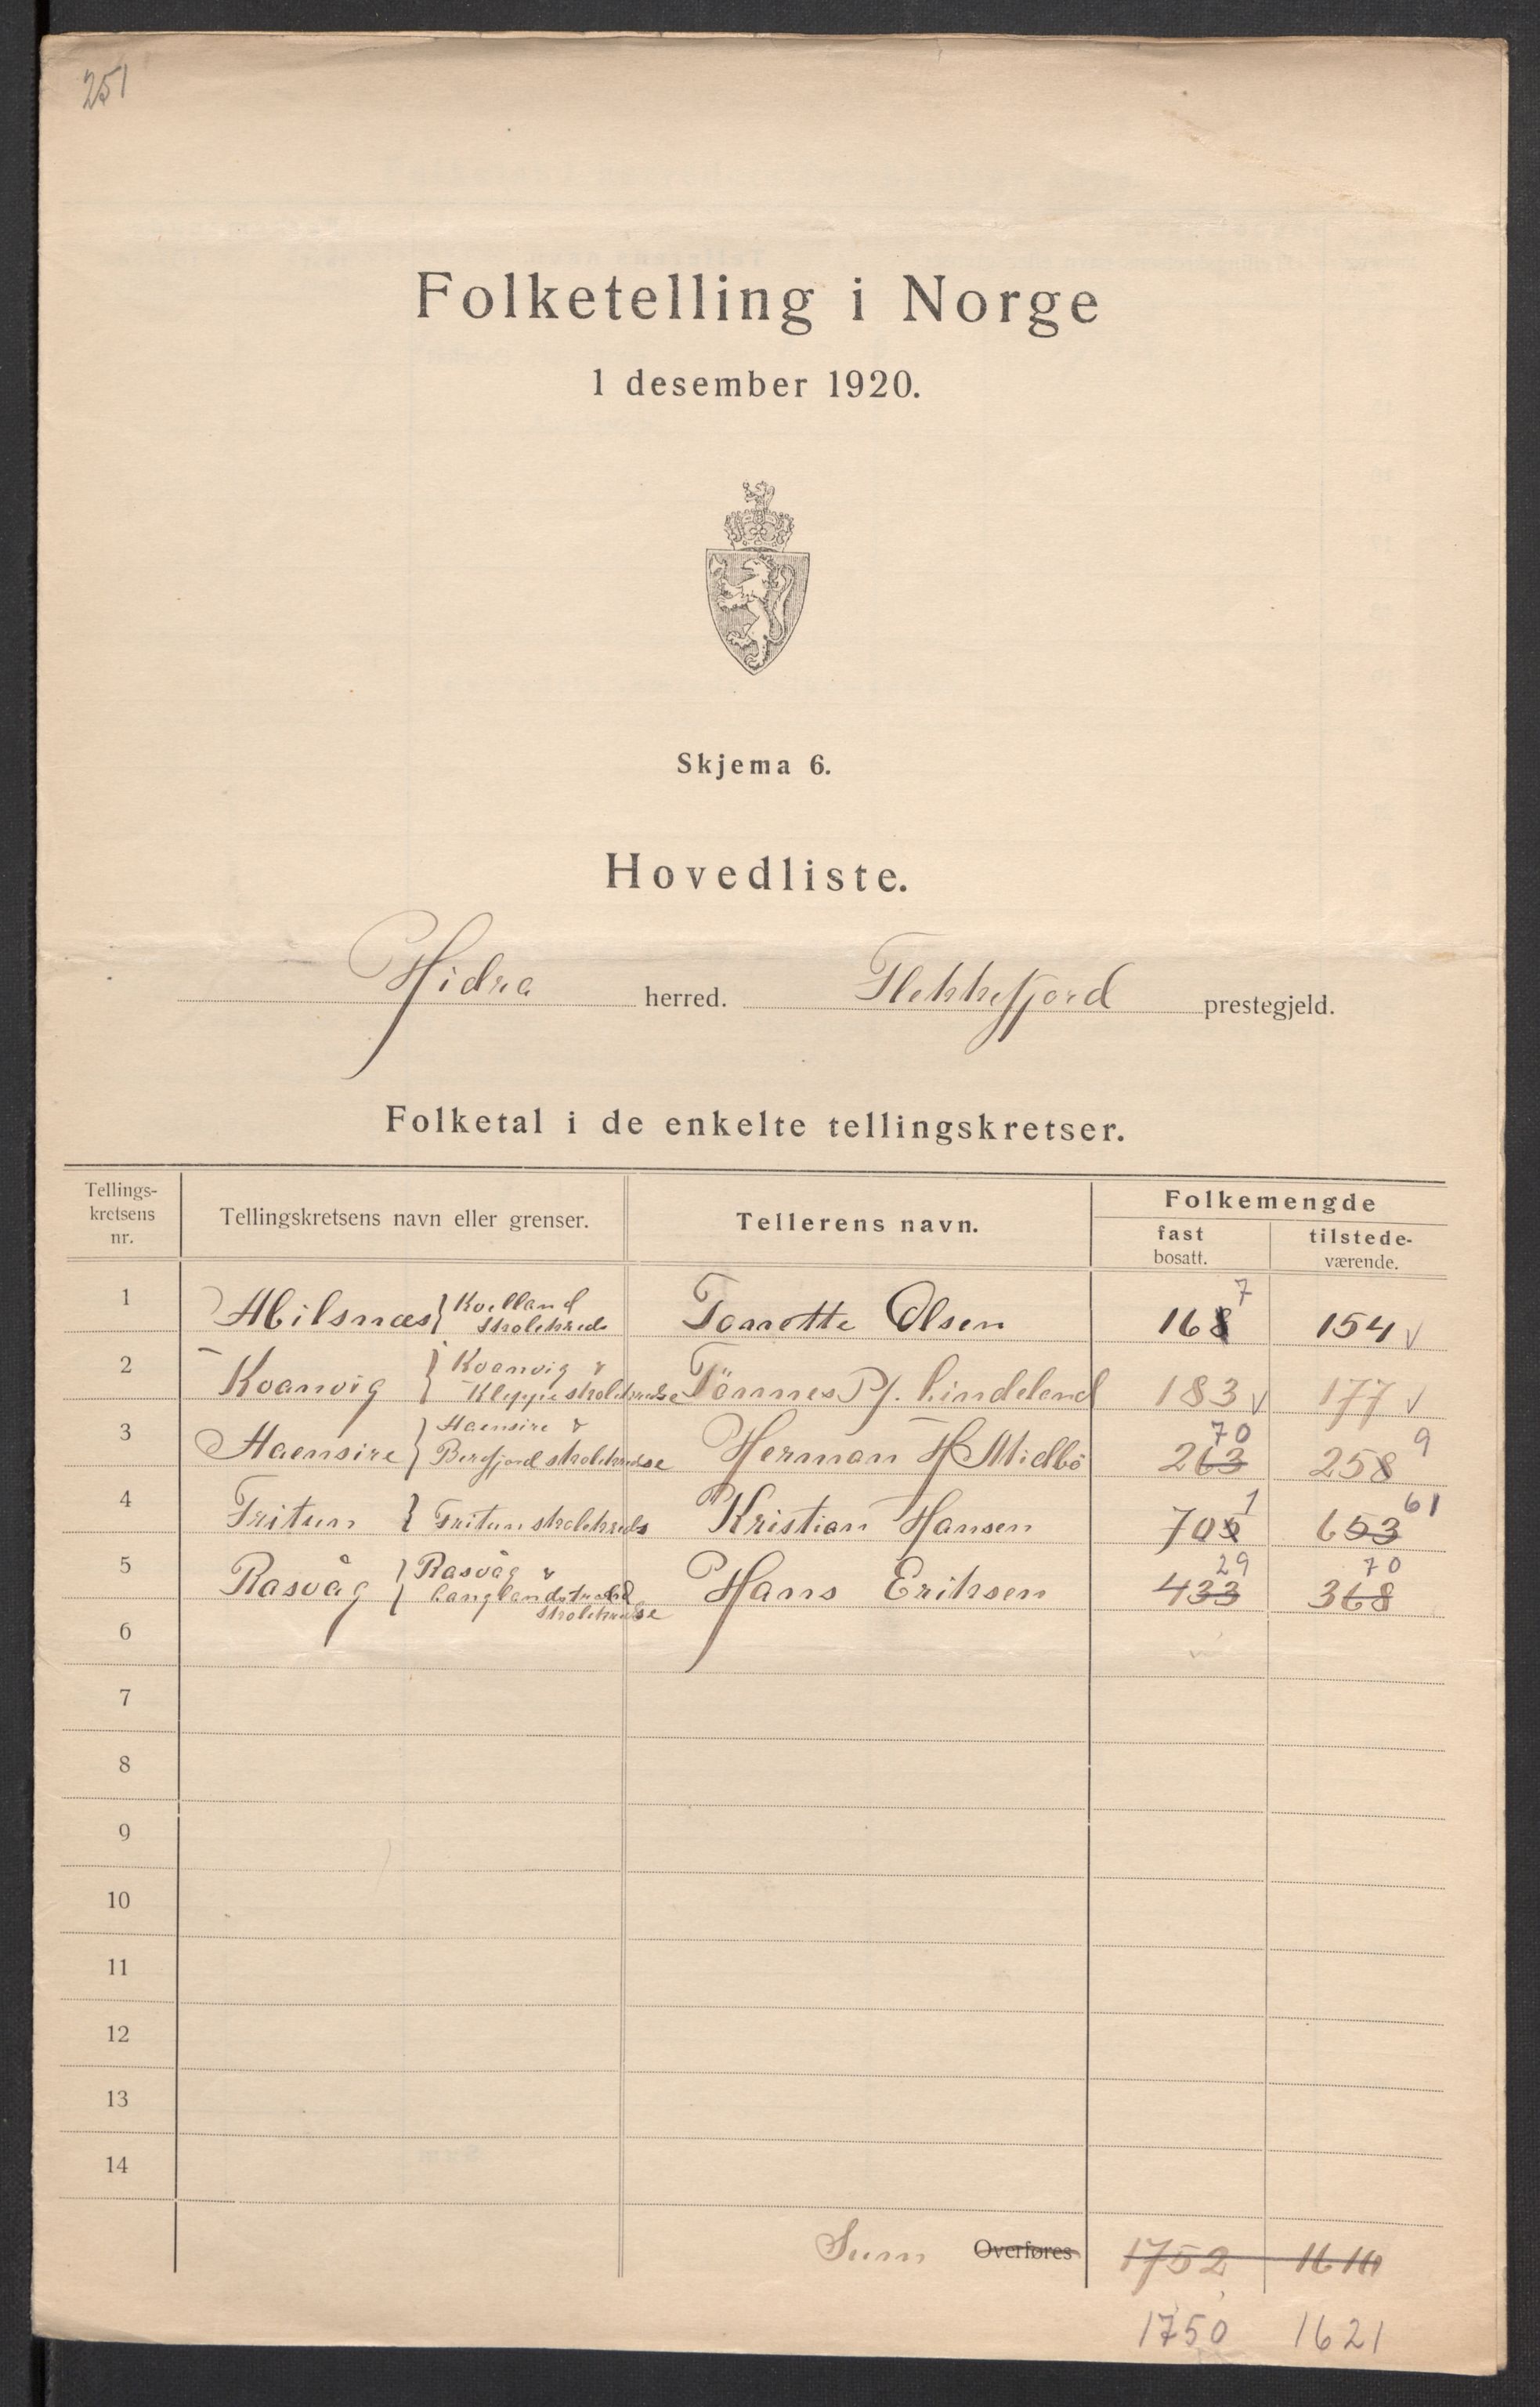 251
Folketelling i Norge
1 desember 1920.
Skjema 6.
Hovedliste.
Hidra herred. Flekkefjord prestegjeld.
Folketal i de enkelte tellingskretser.
Tellings-kretsens nr. Tellingskretsens navn eller grenser. Tellerens navn. Folkemengde
fast bosatt. tilstede-værende.
1 Abilsnæs } Kvelland Skolekreds Tonette Olsen 168 7 154 ✓
2 Kvanvig { Kvanvig & Kleppe skolekredse Tönnes P. Lindeland 183 ✓ 177 ✓
3 Haensire } Haensire & Bergfjord skolekredse Herman H Midbö 263 70 258 9
4 Eritun } Eritun skolekreds Kristian Hansen 705 1 653 61
5 Rasvåg } Rasvåg & Langlandstrand Skolekredse Hans Eriksen 433 29 368 70
6
7
8
9
10
11
12
13
14
Sum Overføres 1752 1610
1750 1621